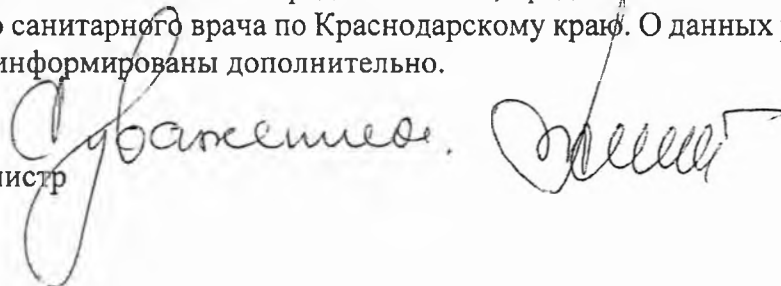 о санитарного врача по Краснодарскому краю. О данных
информированы дополнительно.
С уважением.
нистр